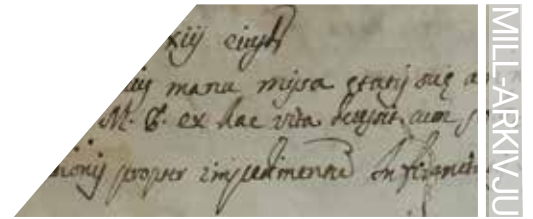 xiij eiusd
manu misa etatis suę an
M. E. ex hac vita decessit, cum
monij propter impedimentū Infirmit
MILL-ARKIVJU